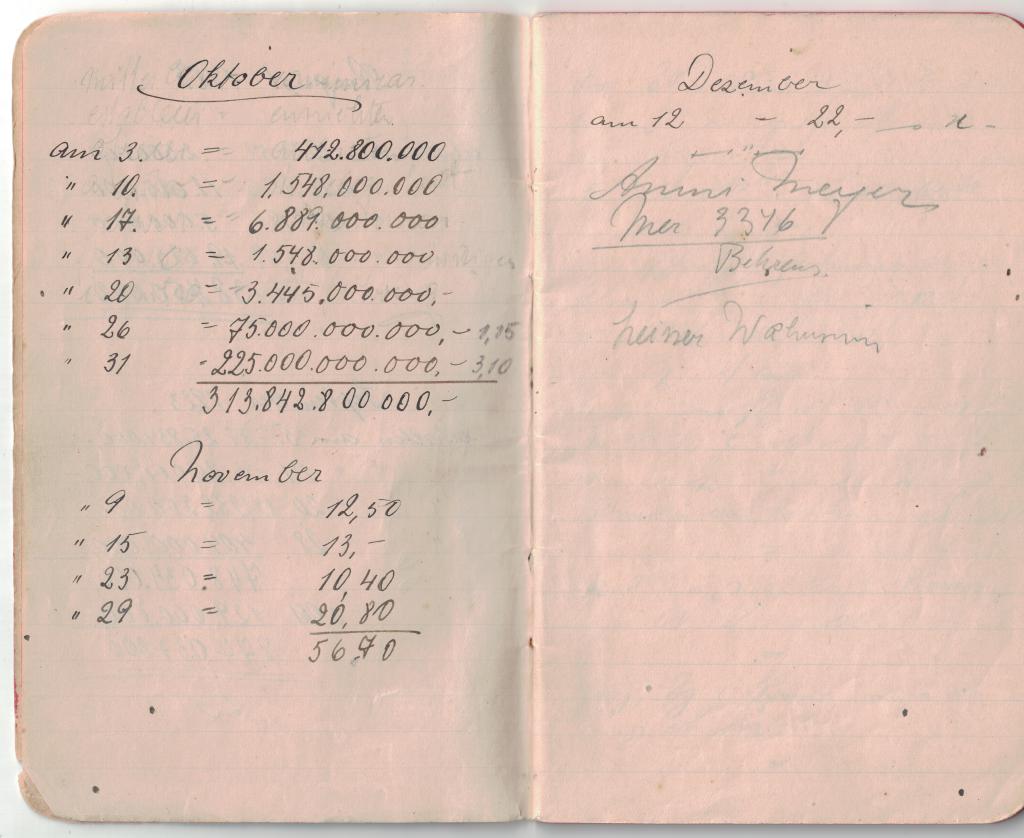 Oktober
am 3. = 412.800.000
" 10. = 1.548.000.000
" 17. = 6.889.000.000
" 13 = 1.548.000.000
" 20 = 3.445.000.000,-
" 26 = 75.000.000.000,- 1,15
" 31 - 225.000.000.000,- 3,10
313.842.800.000,-
November
" 9 = 12,50
" 15 = 13,-
" 23 = 10,40
" 29 = 20,80
56,70
Dezember
am 12 - 22,-
Anni Meyer
3346
Behrens.